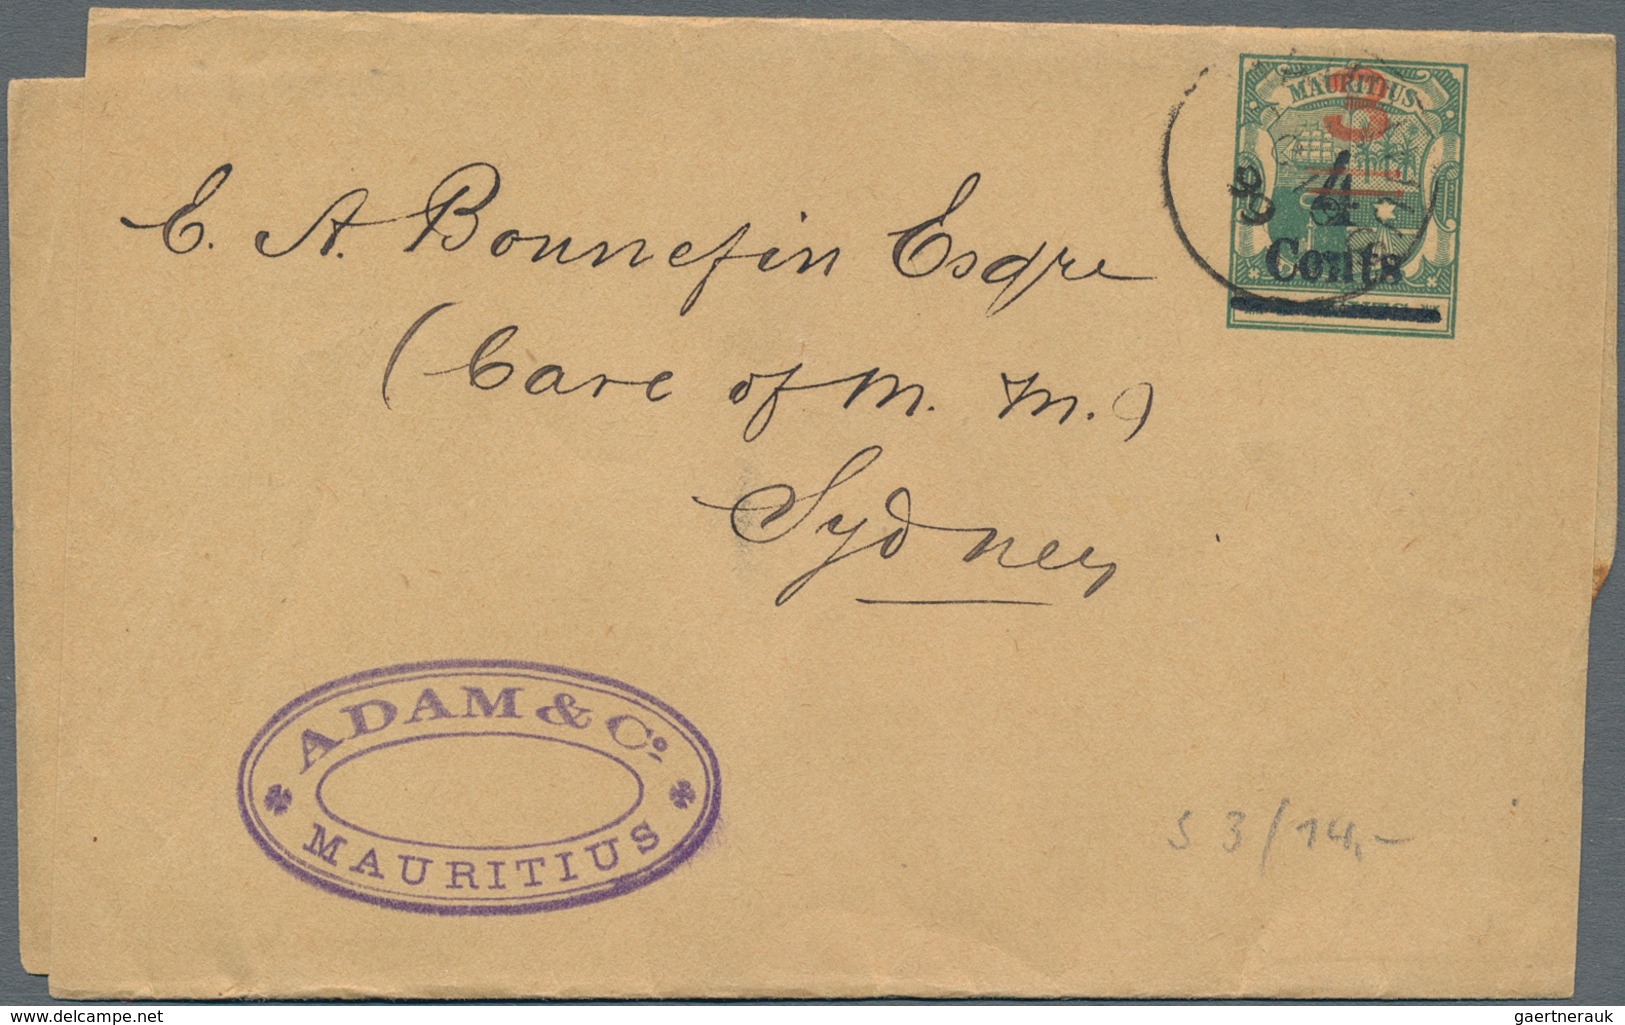 MAURITIUS
3
4
Cents
99
E. A. Bonnefin Esqre
(Care of M. M.)
Sydney
ADAM & Co.
MAURITIUS
S 3/14,-
delcampe.net
gaertnerauk